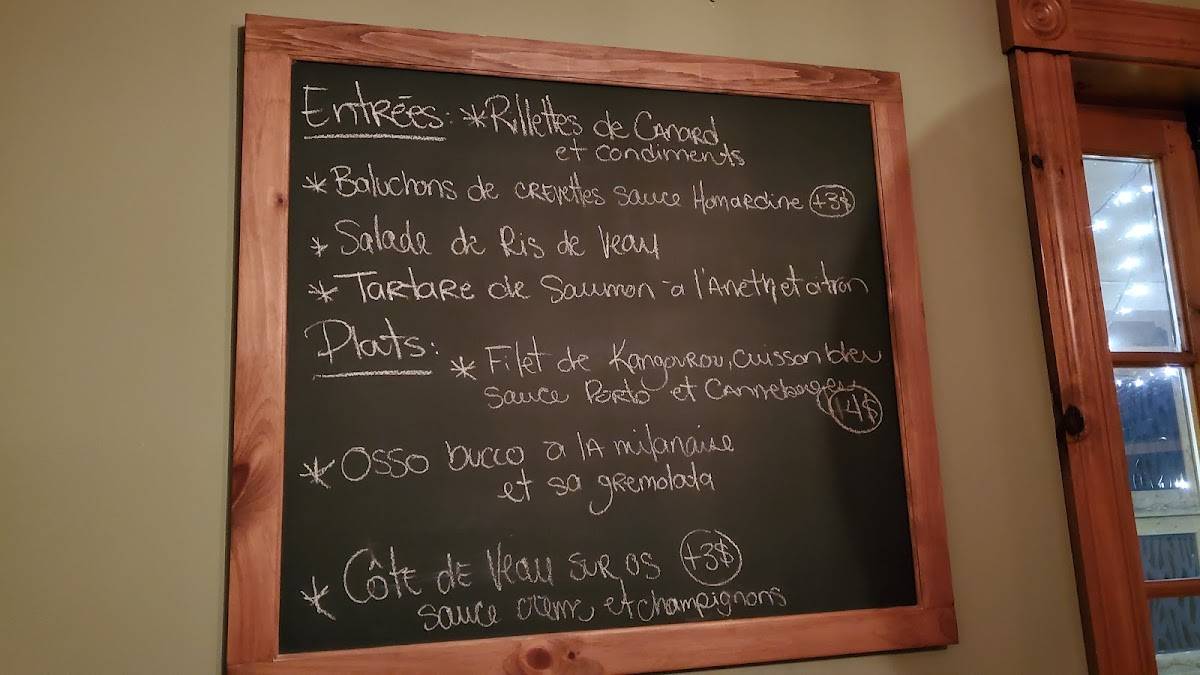 Entrées: *Rillettes de Canard
et condiments
* Baluchons de crevettes sauce Homardine +3$
* Salade de Ris de Veau
* Tartare de Saumon à l'Aneth et citron
Plats: * Filet de Kangourou, cuisson bleu
sauce Porto et Canneberges
+4$
* Osso bucco à la milanaise
et sa gremolata
* Côte de Veau sur os +3$
sauce crème et champignons